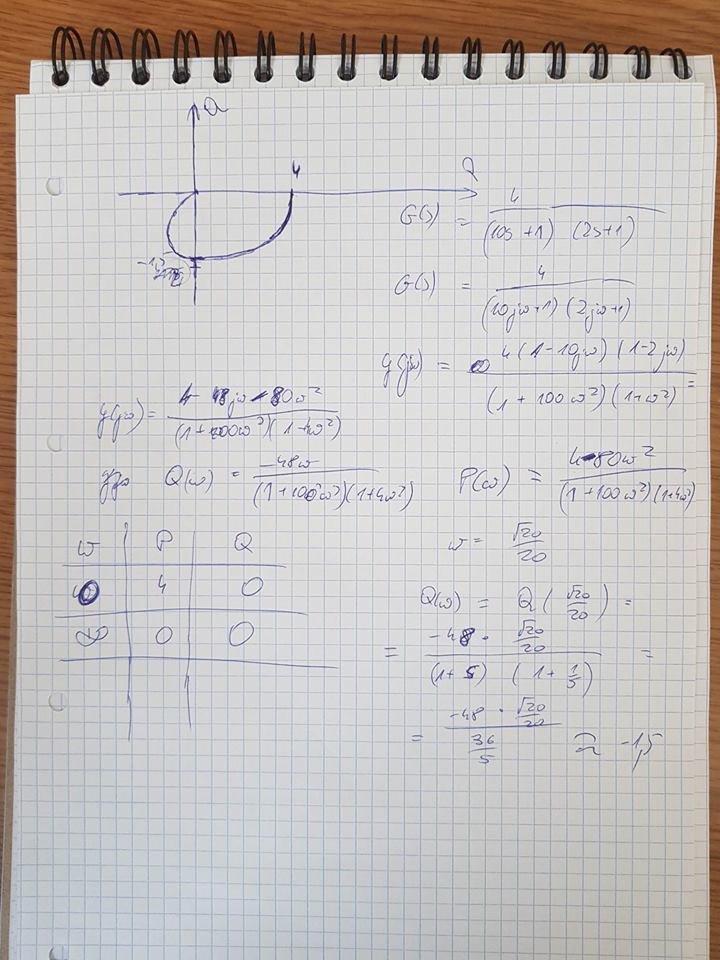 Q
4
P
-1,5
G(s) = 4 / (10s + 1) (2s+1)
G(s) = 4 / (10jω+1) (2jω+1)
G(jω) = 4 (1-10jω) (1-2jω) / (1 + 100ω²) (1+ω²) =
G(jω) = 4 - 48jω - 80ω² / (1+100ω²) (1+4ω²)
Q(ω) = -48ω / (1+100ω²) (1+4ω²)
P(ω) = 4-80ω² / (1+100ω²) (1+4ω²)
ω P Q
0 4 0
∞ 0 0
ω = √20 / 20
Q(ω) = Q (√20 / 20) =
= -48 · √20 / 20 / (1+5) (1 + 1/5) =
= -48 · √20 / 20 / 36/5 ≈ -1,5